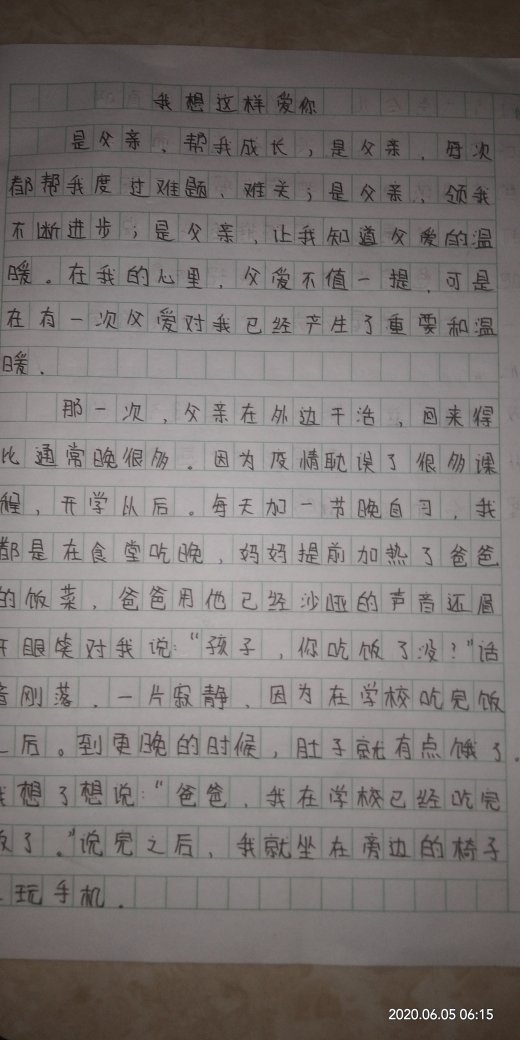 我想这样爱你
是父亲,帮我成长,是父亲,每次
都帮我度过难题、难关;是父亲,领我
不断进步;是父亲,让我知道父爱的温
暖。在我的心里,父爱不值一提,可是
在有一次父爱对我已经产生了重要和温
暖.
那一次,父亲在外边干活,回来得
比通常晚很多。因为疫情耽误了很多课
程,开学以后。每天加一节晚自习,我
都是在食堂吃晚,妈妈提前加热了爸爸
的饭菜,爸爸用他已经沙哑的声音还眉
开眼笑对我说:“孩子,你吃饭了没?”话
音刚落,一片寂静,因为在学校吃完饭
后。到更晚的时候,肚子就有点饿了。
我想了想说:“爸爸,我在学校已经吃完
饭了。”说完之后,我就坐在旁边的椅子
玩手机.
2020.06.05 06:15